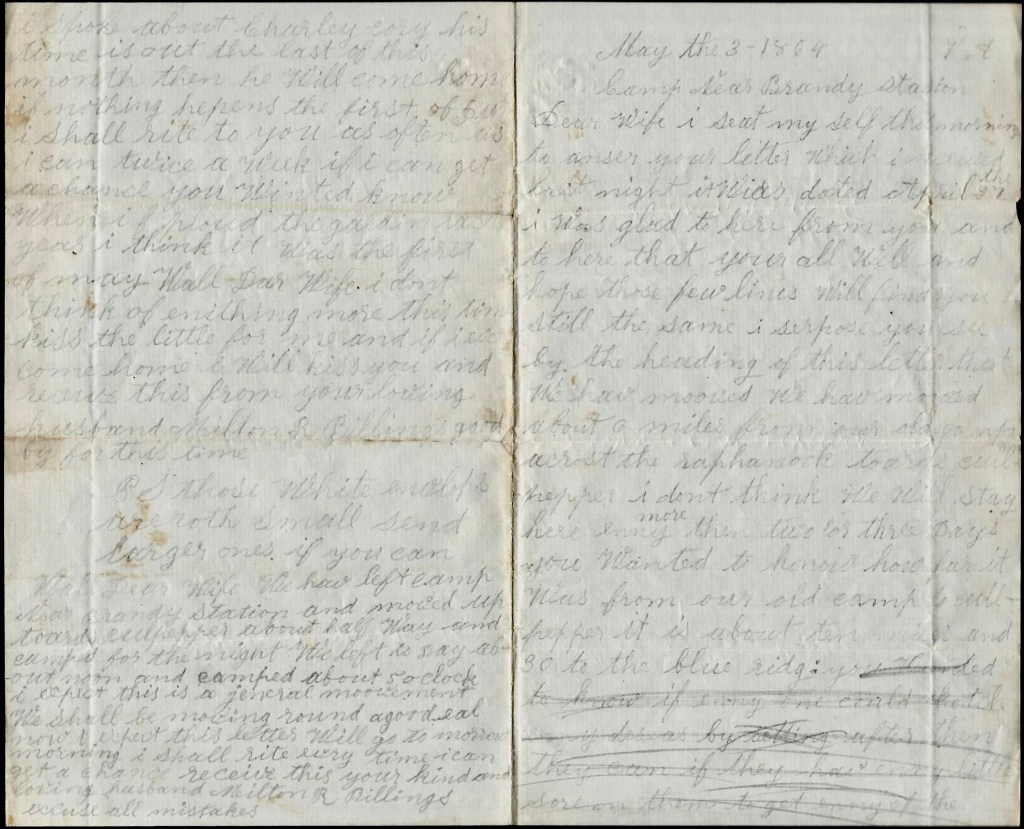 May the 3 - 1864
Camp Near Brandy Station
Dear Wife i seat my self this morning
to anser your letter Which i received
last night it Was dated April the
i Was glad to here from you and
to here that your all Well and
hope those few lines Will find you
still the same i serpose you see
by the heading of this letter that
We hav mooved We hav mooved
about 6 miles from our old camp
acrost the raphanock toards cull-
pepper i dont think We Will stay
here enny more then two or three Days
you Wanted to know how far it
Was from our old camp to cull-
pepper it is about ten miles and
30 to the blue ridg: you Wanted
to know if enny one could ketch
by setting after them
they can if they hav enny little
sore on them to get enny of the
i spoke about Charley cory his
time is out the last of this
month then he Will come home
if nothing hepens the first of
i shall rite to you as often as
i can twice a Week if i can get
a chance you Wanted know
When i ploud the garden last
year i think it Was the first
of may Wall Dear Wife i dont
think of enithing more this time
kiss the little for me and if i
come home i Will kiss you and
receive this from your loving
husband Milton R Billings good
by for this time
P S those White
are roth small send
larger ones if you can
Wall Dear Wife We hav left camp
Near Brandy station and mooved up
toard culpepper about half Way and
camped for the night We left to day ab-
out noon and camped about 5 oclock
i expect this is a jeneral moovement
We shall be moving round a good eal
now i expect this letter Will go to morrow
morning i shall rite every time i can
get a chance receive this your kind and
loving husband Milton R Billings
excuse all mistakes